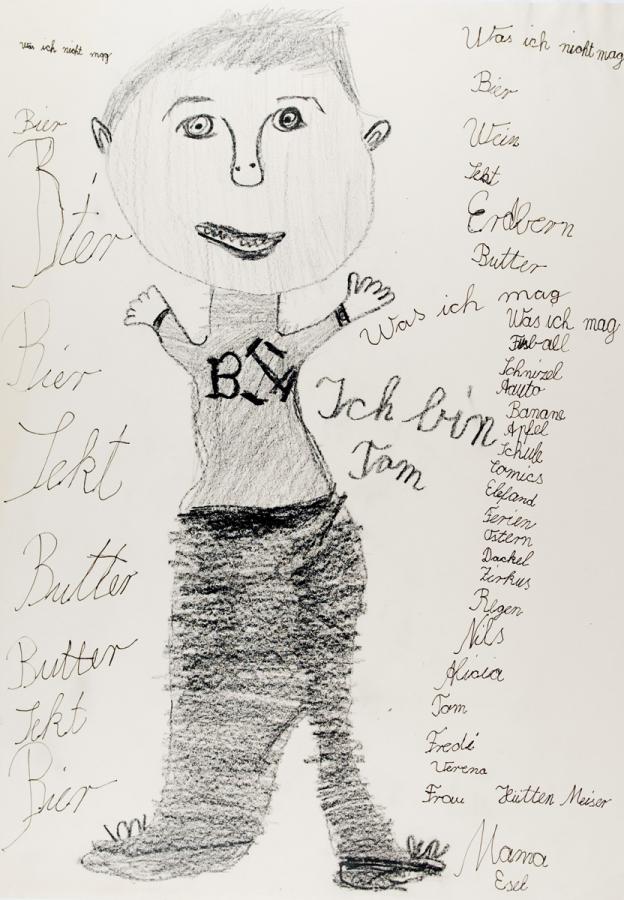 was ich nicht mag
Bier
Bier
Bier
Sekt
Butter
Butter
Sekt
Bier
Was ich nicht mag
Bier
Wein
Sekt
Erdbern
Butter
Was ich mag
Was ich mag
Fusball
Schnizel
Aauto
Banane
Apfel
Schule
Comics
Elefand
Ferien
Ostern
Dackel
Zirkus
Regen
Nils
Alicia
Tom
Fredi
Verena
Frau Hütten Meiser
Mama
Esel
Ich bin
Tom